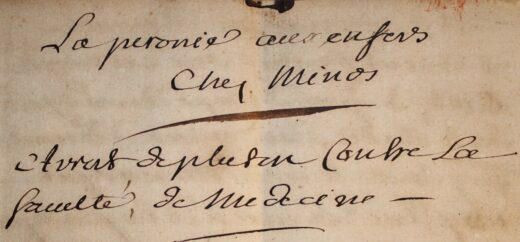 La peronie aux enfers
Chez Minos
et arrest de pluton Contre La
faculté, de Medecine —